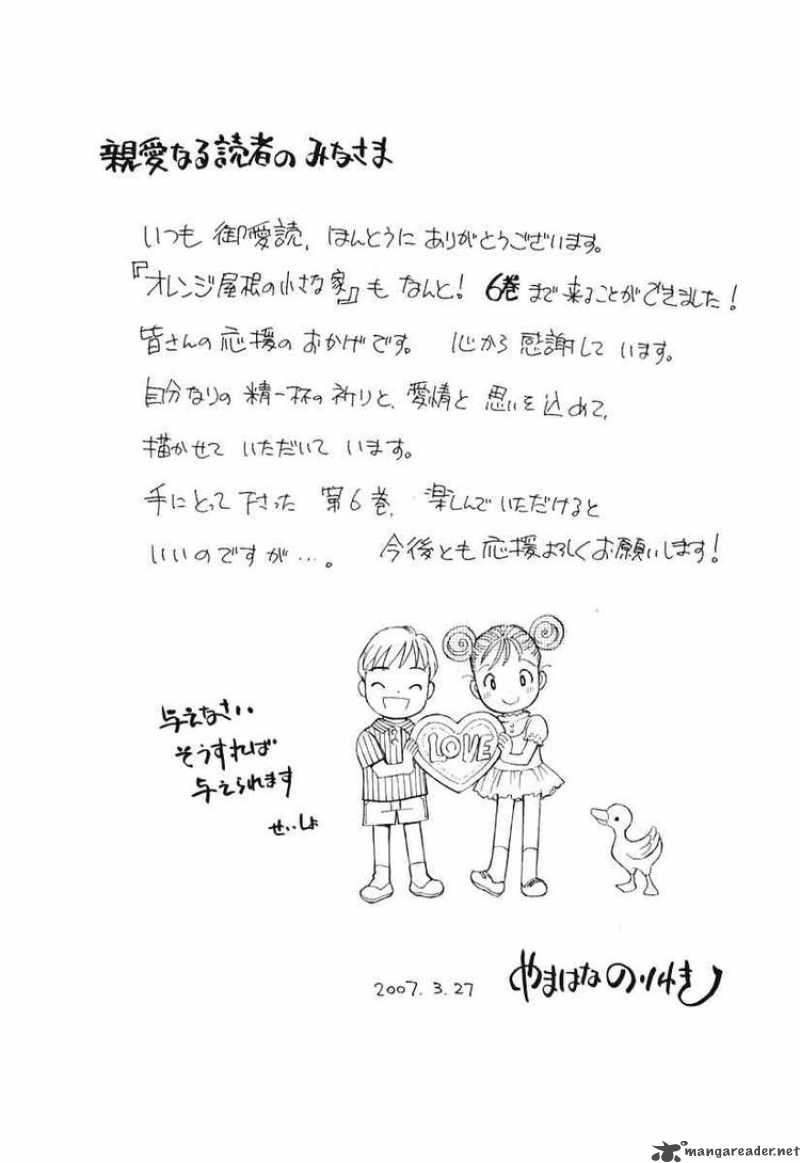 親愛なる読者の みなさま
いつも 御愛読、ほんとうに ありがとうございます。
『オレンジ屋根の小さな家』も なんと! 6巻 まで 来ることが できました!
皆さんの 応援の おかげです。 心から 感謝して います。
自分なりの 精一杯の 祈りと、愛情と 思いを 込めて、
描かせて いただいて います。
手にとって 下さった 第6巻、楽しんで いただけると
いいのですが…。 今後とも 応援よろしく お願いします!
LOVE
与えなさい
そうすれば
与えられます
せいしょ
2007. 3. 27
やまはな のりゆき
mangareader.net